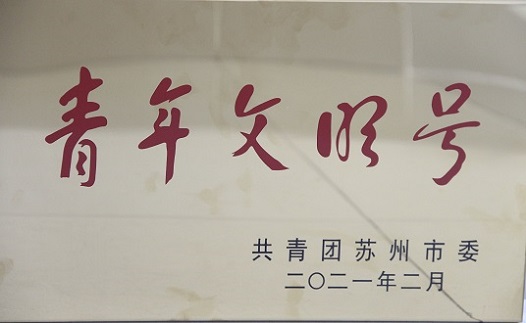 青年文明号
共青团苏州市委
二〇二一年二月